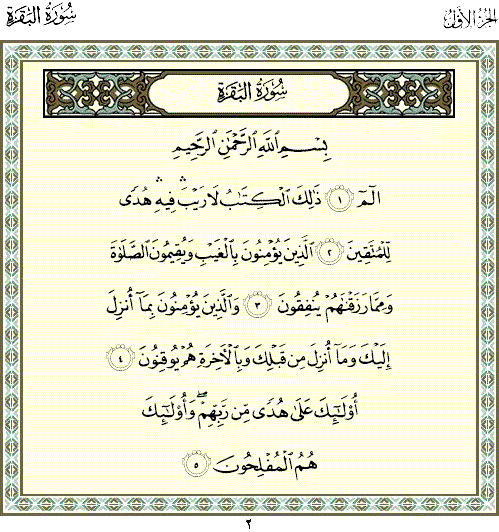 الجزء الأول
سورة البقرة
سورة البقرة
بِسْمِ ٱللَّهِ ٱلرَّحْمَٰنِ ٱلرَّحِيمِ
الٓمٓ ١ ذَٰلِكَ ٱلْكِتَٰبُ لَا رَيْبَ ۛ فِيهِ ۛ هُدًى
لِّلْمُتَّقِينَ ٢ ٱلَّذِينَ يُؤْمِنُونَ بِٱلْغَيْبِ وَيُقِيمُونَ ٱلصَّلَوٰةَ
وَمِمَّا رَزَقْنَٰهُمْ يُنفِقُونَ ٣ وَٱلَّذِينَ يُؤْمِنُونَ بِمَآ أُنزِلَ
إِلَيْكَ وَمَآ أُنزِلَ مِن قَبْلِكَ وَبِٱلْءَاخِرَةِ هُمْ يُوقِنُونَ ٤
أُو۟لَٰٓئِكَ عَلَىٰ هُدًى مِّن رَّبِّهِمْ ۖ وَأُو۟لَٰٓئِكَ
هُمُ ٱلْمُفْلِحُونَ ٥
٢